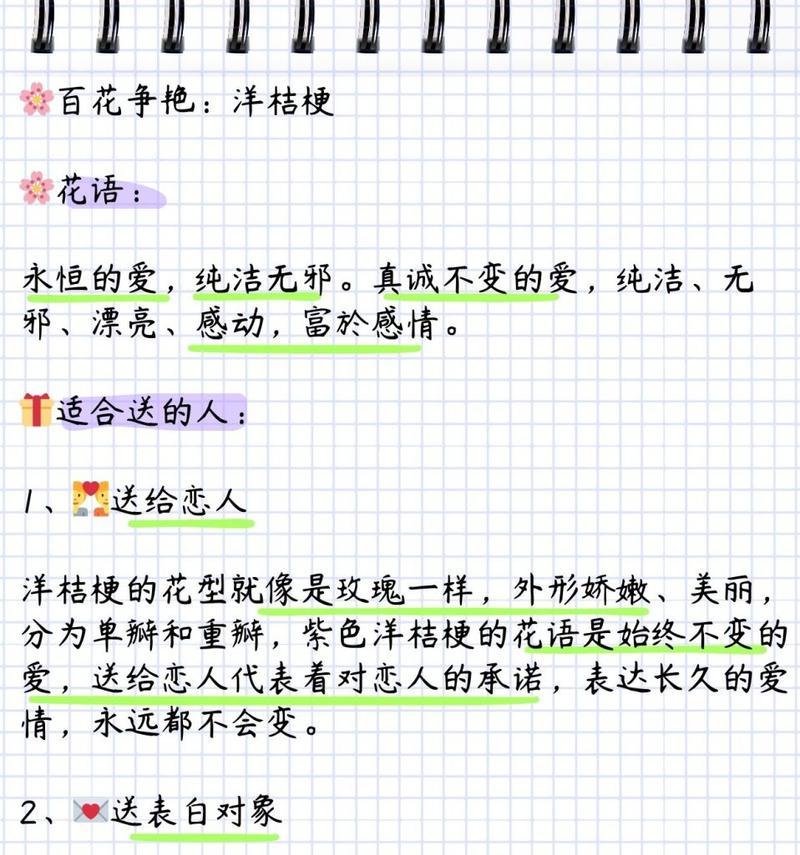 🌸百花争艳：洋桔梗
🌸花语：
永恒的爱，纯洁无邪。真诚不变的爱，纯洁、无
邪、漂亮、感动，富於感情。
🎁适合送的人：
1、送给恋人
洋桔梗的花型就像是玫瑰一样，外形娇嫩、美丽，
分为单瓣和重瓣，紫色洋桔梗的花语是始终不变的
爱，送给恋人代表着对恋人的承诺，表达长久的爱
情，永远都不会变。
2、💌送表白对象